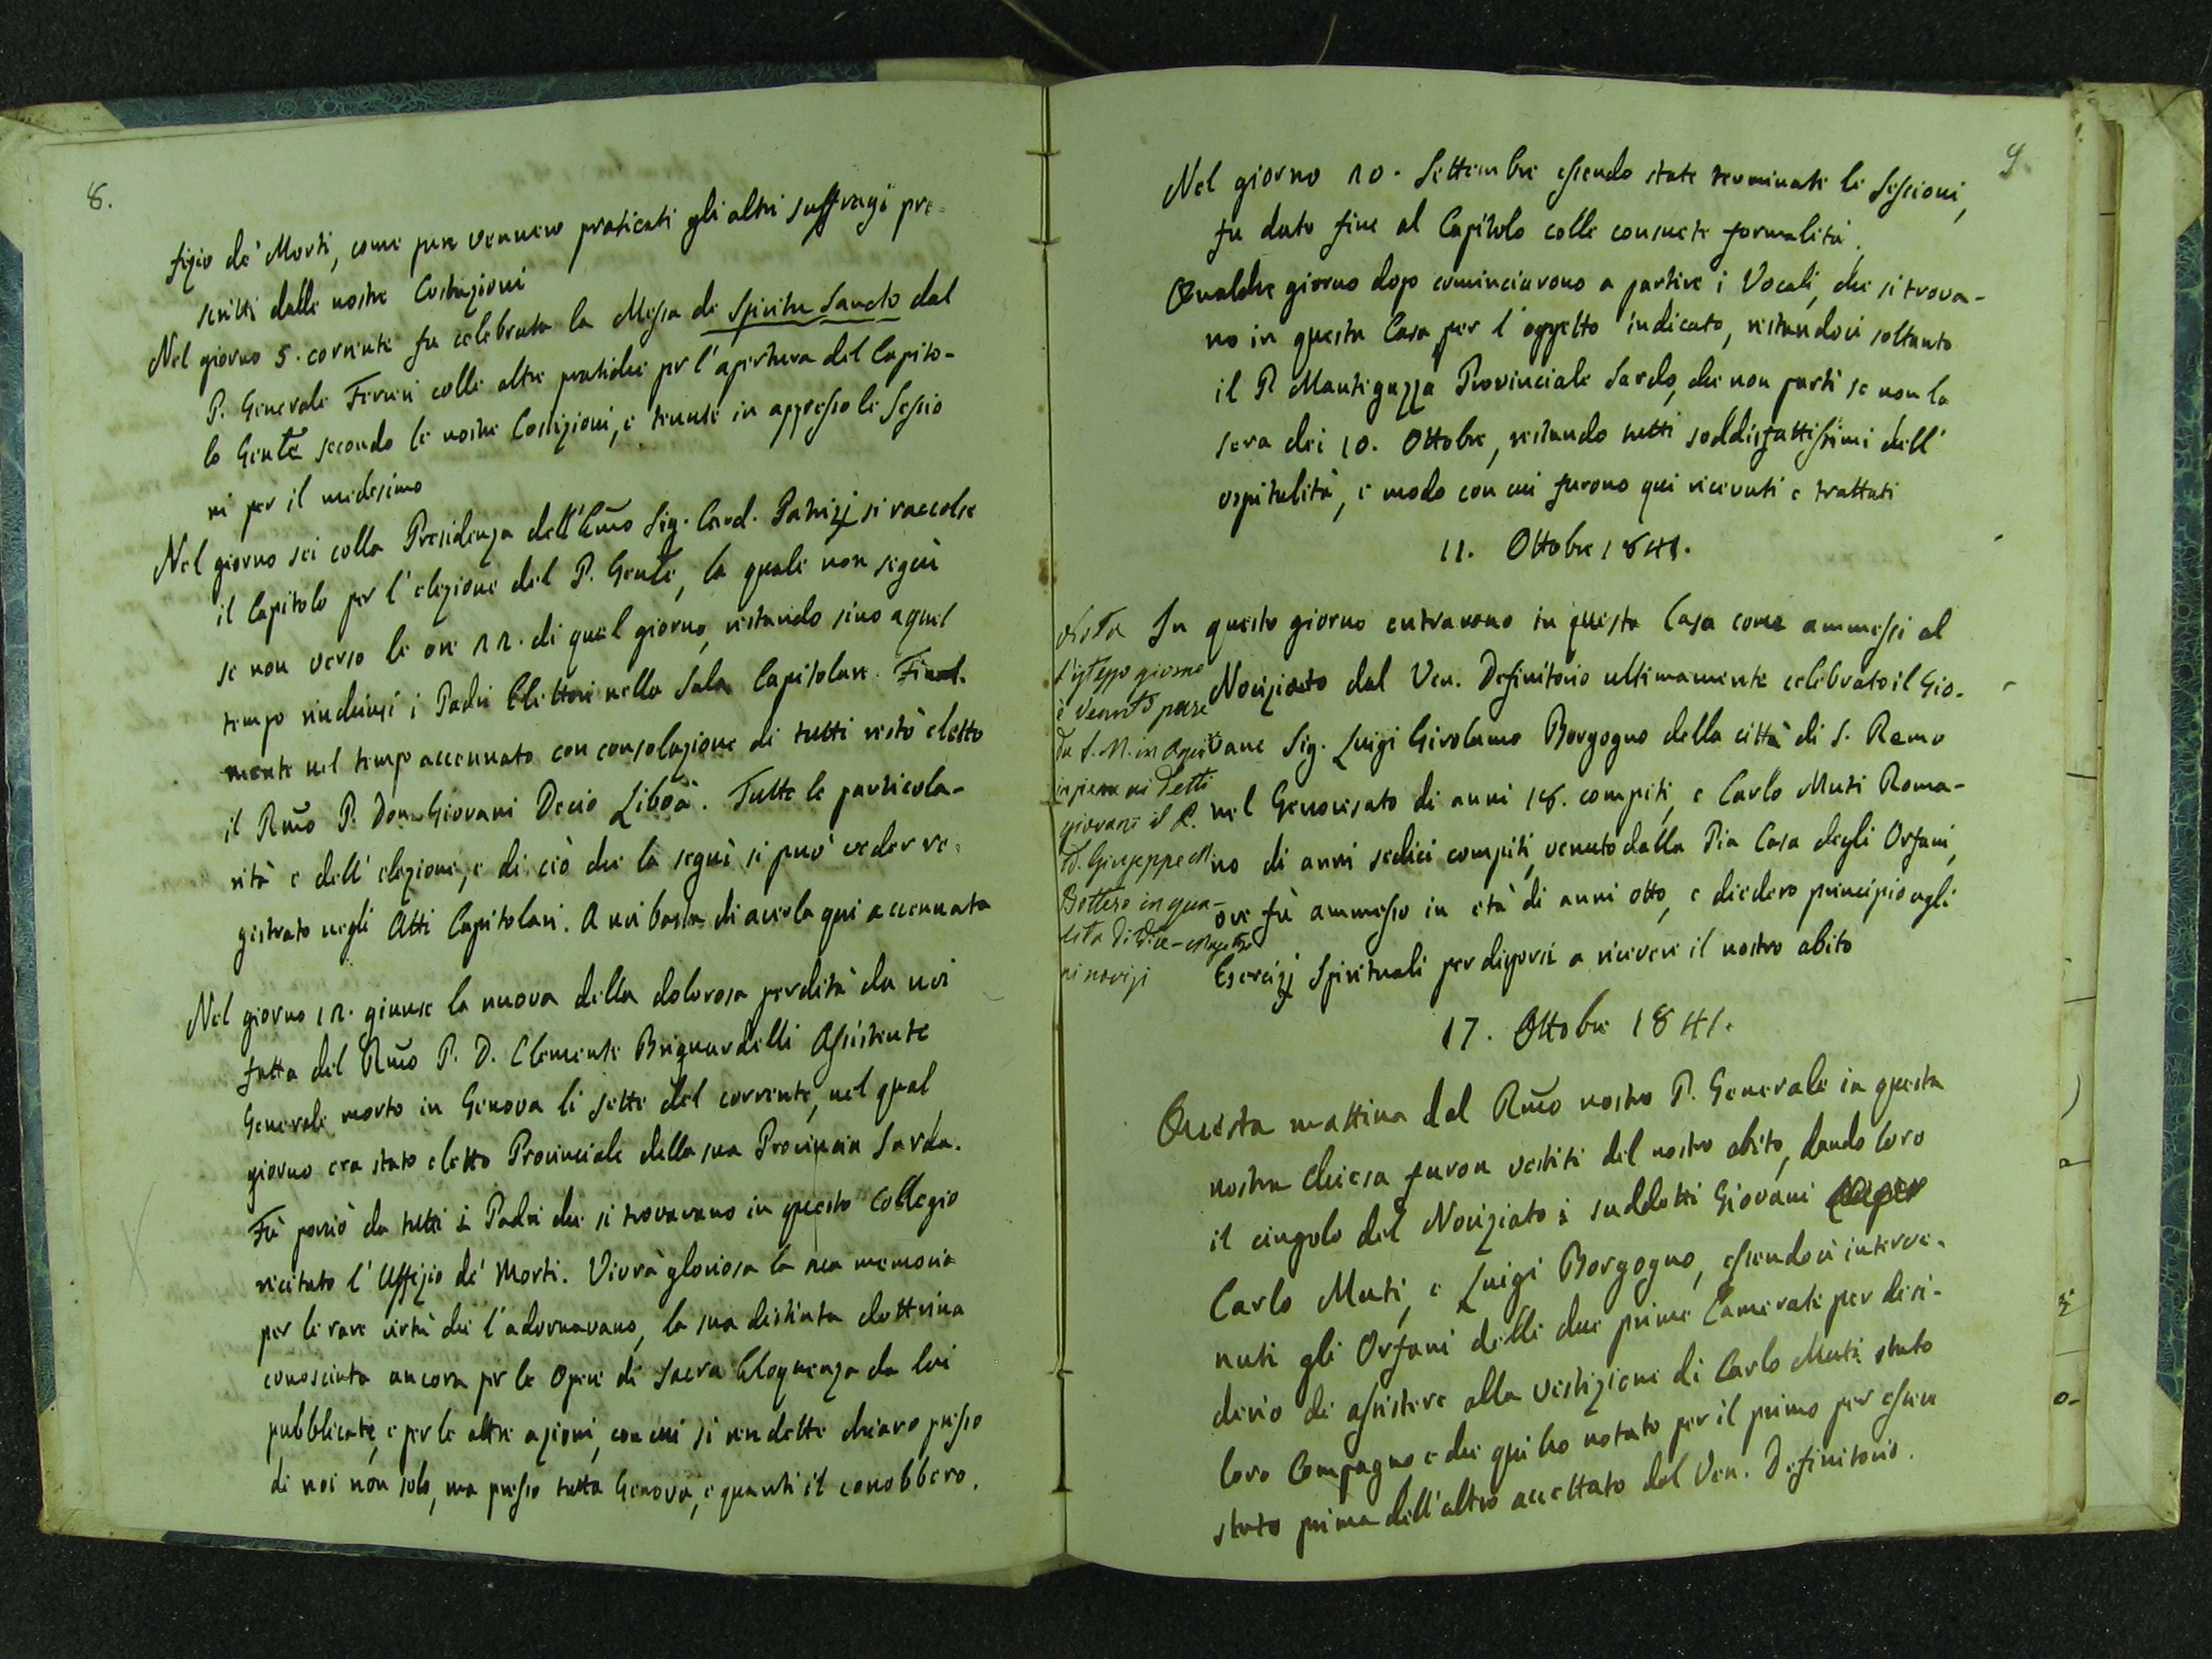 8.
fizio de' Morti, come pure vennero praticati gli altri suffragj pre=
scritti dalle nostre Costituzioni
Nel giorno 5. corrente fu celebrata la Messa de Spiritu Sancto dal
P. Generale Ferreri colle altre pratiche per l'apertura del Capito-
lo Gen.le secondo le nostre Costizioni, e tenute in appresso le Sessio
ni per il medesimo
Nel giorno sei colla Presidenza dell'Emo Sig. Card. Patrizj si raccolse
il Capitolo per l'elezione del P. Gen.le, la quale non seguì
se non verso le ore 22. di quel giorno, restando sino a quel
tempo rinchiusi i Padri Elettori nella Sala Capitolare. Final.
mente nel tempo accennato con consolazione di tutti restò eletto
il Rmo P. Don Giovani Decio Liboà. Tutte le particola-
rità e dell'elezione, e di ciò che la seguì si può veder re=
gistrato negli Atti Capitolari. A noi basta di averla qui accennata
Nel giorno 12. giunse la nuova della dolorosa perdita da noi
fatta del Rmo P. D. Clemente Brignardelli Assistente
Generale morto in Genova li sette del corrente, nel qual
giorno era stato eletto Provinciale della sua Provincia Sarda.
Fù perciò da tutti i Padri che si trovavano in questo Collegio
recitato l'Uffizio de' Morti. Vivrà gloriosa la sua memoria
per le rare virtù che l'adornavano, la sua distinta dottrina
conosciuta ancora per le Opere di Sacra Eloquenza da lui
pubblicate, e per le altre azioni, con cui si rendette chiaro presso
di noi non solo, ma presso tutta Genova, e quanti il conobbero.
9.
Nel giorno 20. Settembre essendo state terminate le Sessioni,
fu dato fine al Capitolo colle consuete formalità.
Qualche giorno dopo cominciarono a partire i Vocali, che si trova-
no in questa Casa per l'oggetto indicato, restandoci soltanto
il P. Mantegazza Provinciale Sardo, che non partì se non la
sera dei 10. Ottobre, restando tutti soddisfattissimi dell'
ospitalità, e modo con cui furono qui ricevuti e trattati
11. Ottobre 1841.
In questo giorno entrarono in questa Casa come ammessi al
Noviziato dal Ven. Definitorio ultimamente celebrato il Gio-
vane Sig. Luigi Girolamo Borgogno della città di S. Remo
nel Genovesato di anni 18. compiti, e Carlo Muti Roma-
no di anni sedici compiti, venuto dalla Pia Casa degli Orfani,
ove fù ammesso in età di anni otto, e diedero principio agli
Esercizj Spirituali per disporsi a ricevere il nostro abito
Nota
l'istesso giorno
è venuto pure
da S. M. in Aquiro
insieme ai detti
giovani il P.
D. Giuseppe M.
Bottero in qua-
lità di Vice-Maestro
ai novizj
17. Ottobre 1841.
Questa mattina dal Rmo nostro P. Generale in questa
nostra Chiesa furon vestiti del nostro abito, dando loro
il cingolo del Noviziato i suddetti Giovani
Carlo Muti, e Luigi Borgogno, essendoci interve-
nuti gli Orfani delle due prime Camerate per desi-
derio di assistere alla vestizione di Carlo Muti stato
loro Compagno e che qui ho notato per il primo per essere
stato prima dell'altro accettato dal Ven. Definitorio.